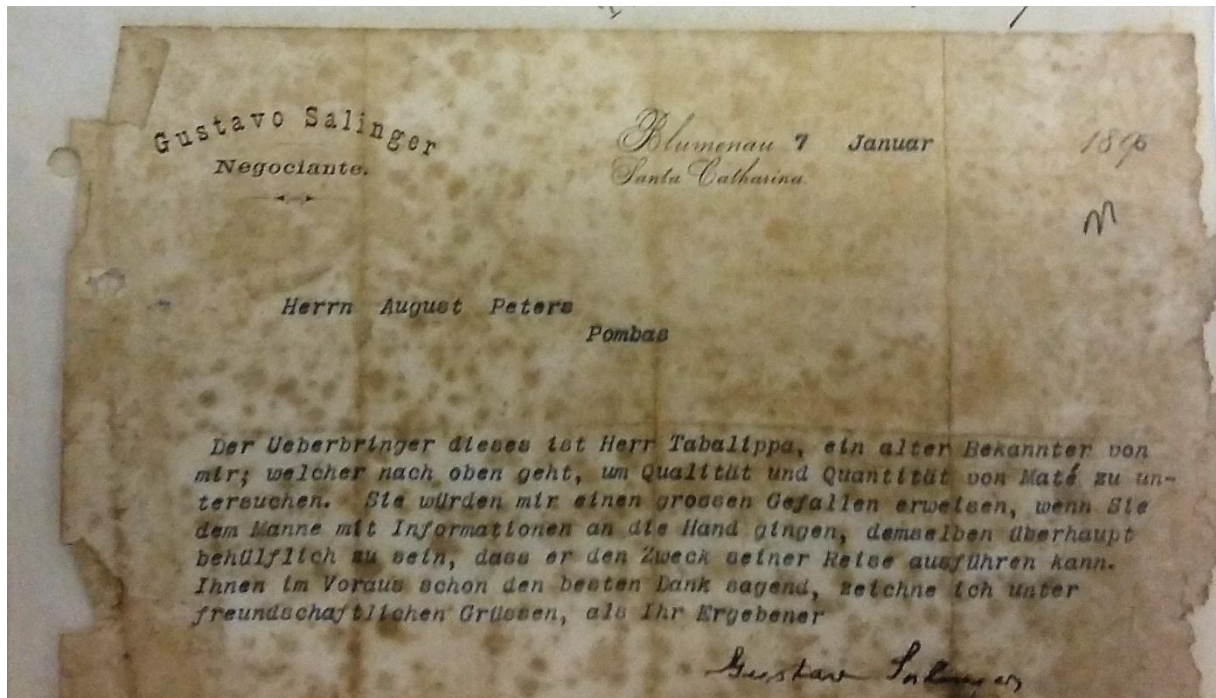 Gustavo Salinger
Negociante.
Blumenau 7 Januar 1895
Santa Catharina.
Herrn August Peters
Pombas
Der Ueberbringer dieses ist Herr Tabalippa, ein alter Bekannter von
mir; welcher nach oben geht, um Qualität und Quantität von Maté zu un-
tersuchen. Sie würden mir einen grossen Gefallen erweisen, wenn Sie
dem Manne mit Informationen an die Hand gingen, demselben überhaupt
behülflich zu sein, dass er den Zweck seiner Reise ausführen kann.
Ihnen im Voraus schon den besten Dank sagend, zeichne ich unter
freundschaftlichen Grüssen, als Ihr Ergebener
Gustav Salinger